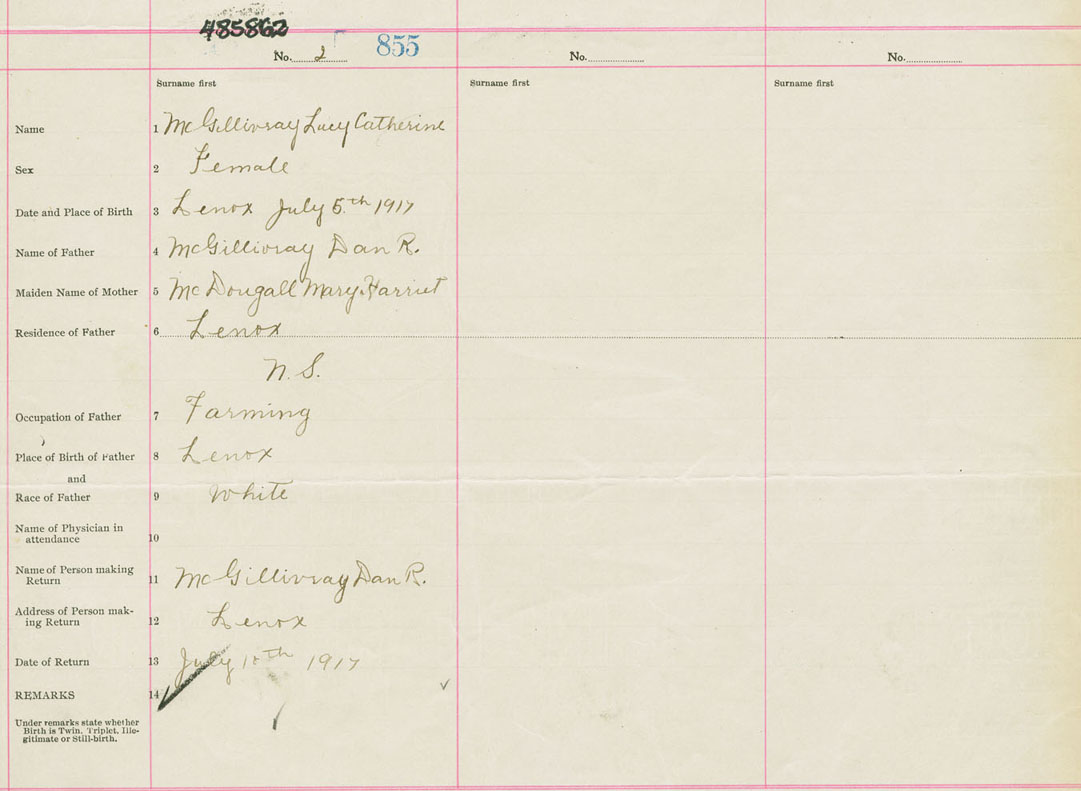 485862
No. 2 855 No. No.
Surname first Surname first Surname first
Name 1 McGillivray Lucy Catherine
Sex 2 Female
Date and Place of Birth 3 Lenox July 5th 1917
Name of Father 4 McGillivray Dan R.
Maiden Name of Mother 5 McDougall Mary Harriet
Residence of Father 6 Lenox
N.S.
Occupation of Father 7 Farming
Place of Birth of Father 8 Lenox
and
Race of Father 9 White
Name of Physician in
attendance 10
Name of Person making
Return 11 McGillivray Dan R.
Address of Person mak-
ing Return 12 Lenox
Date of Return 13 July 1917
REMARKS 14
Under remarks state whether
Birth is Twin, Triplet, Ille-
gitimate or Still-birth.